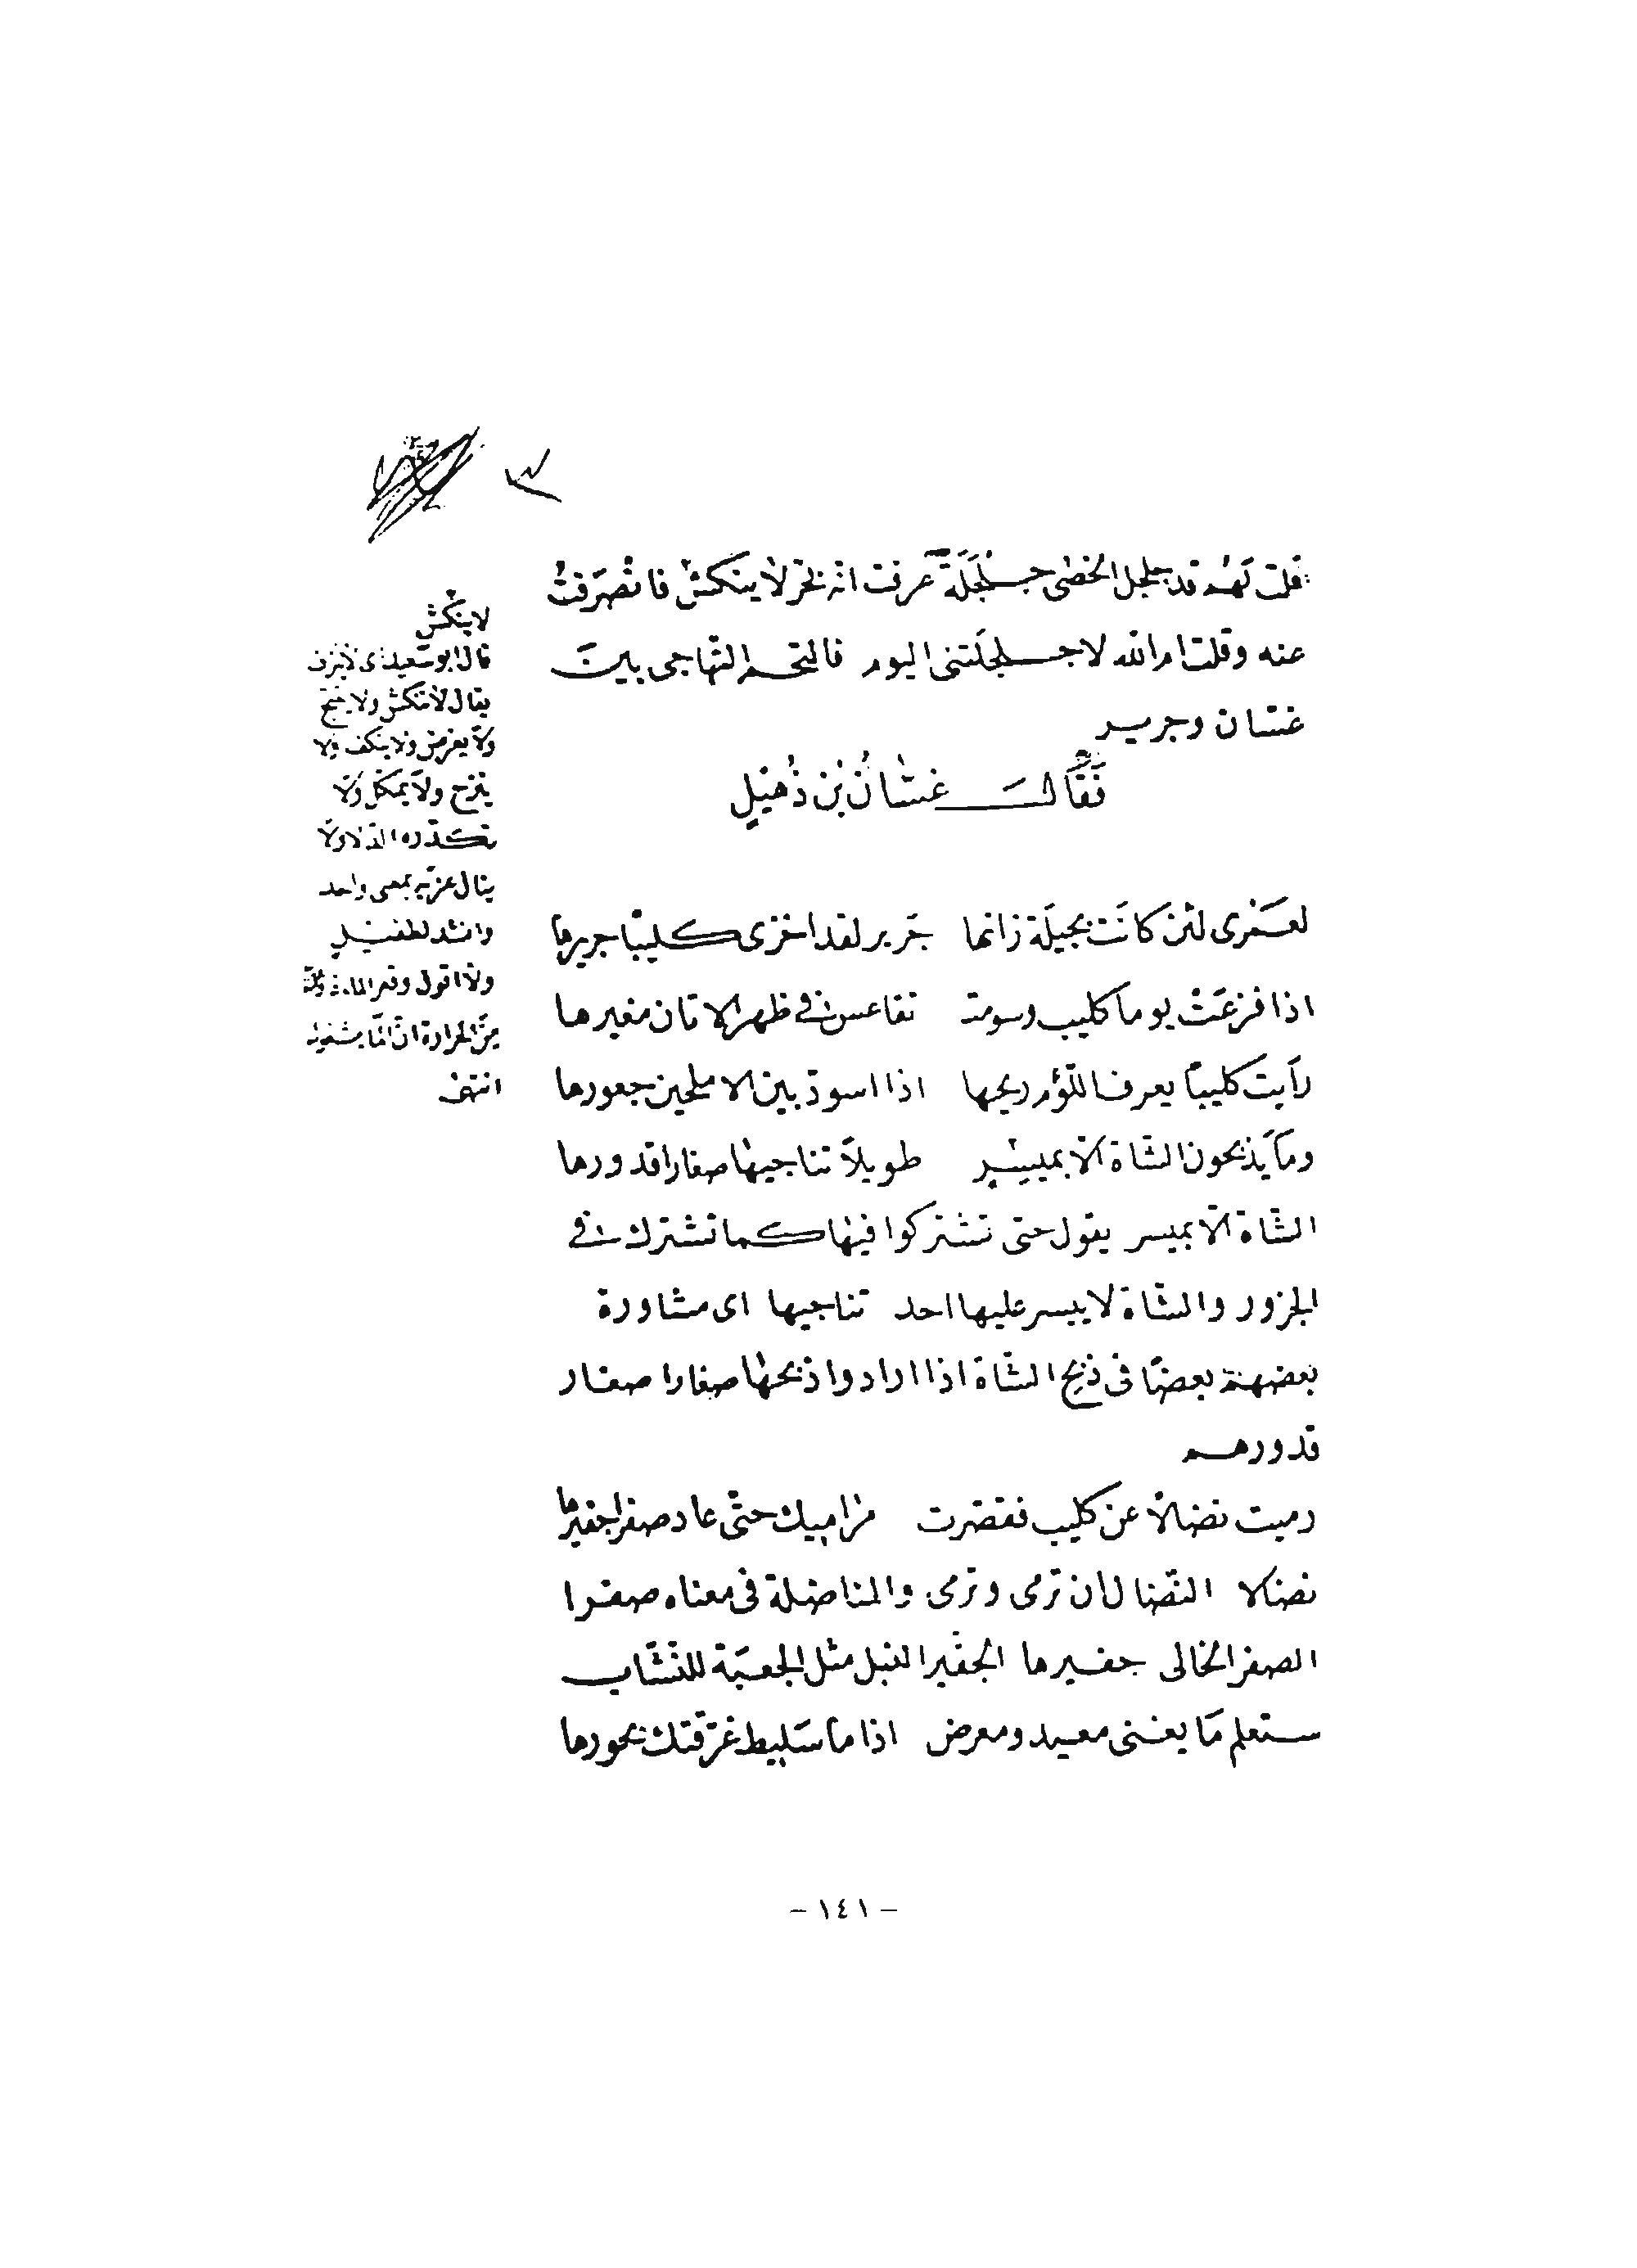 قلت لهم قد جلجل الخصى جلجلة عرفت انه بحر لا ينكش فانصرفت
عنه وقلت ام الله لا جلجلتنى اليوم فالتحم التهاجى بين
غسان وجرير
فقال غسان بن ذهيل
لعمرى لئن كانت بجيلة زانها جرير لقد اخزى كليبا جريرها
اذا فزعت يوما كليب وسومت تقاعس فى ظهر الاتان مغيرها
رأيت كليبا يعرف اللؤم ريحها اذا اسود بين الاملحين جعورها
وما يذبحون الشاة الا بميسر طويلا تناجيها صغارا قدورها
الشاة الا بميسر يقول حتى تشتركوا فيها كما تشترك فى
الجزور والشاة لا ييسر عليها احد تناجيها اى مشاورة
بعضهم بعضا فى ذبح الشاة اذا ارادوا ذبحها صغارا صغار
قدورهم
رميت نضالا عن كليب فقصرت مراميك حتى عاد صفرا جفيرها
نضالا النضال ان ترمى وترمى والمناضلة فى معناه صفرا
الصفر الخالى جفيرها الجفير النبل مثل الجعبة للنشاب
ستعلم ما يغنى معيد ومعرض اذا ما سليط غرقتك بحورها
لا ينكش
قال ابو سعيد اى لا ينزف
يقال لا ينكش ولا
ولا يغرض ولا ينكف ولا
ينزح ولا يمكل ولا
تكدره الدلا ولا
ينال غربه بمعنى واحد
وانشد لطفيل
ولا اقول وقعر الماء
من الحرارة ان الما مشغول
انتهى
- ١٤١ -